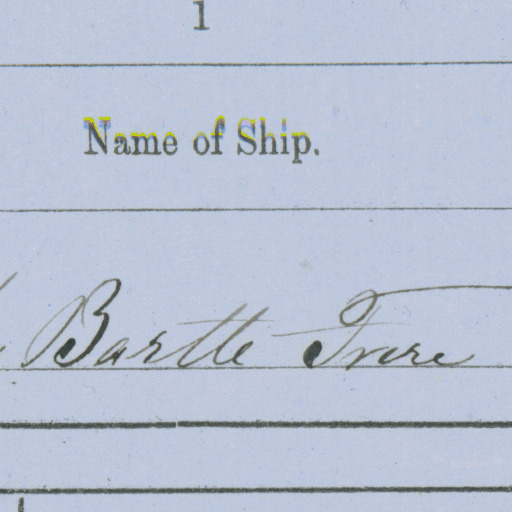 1
Name of Ship.
Bartle Frere